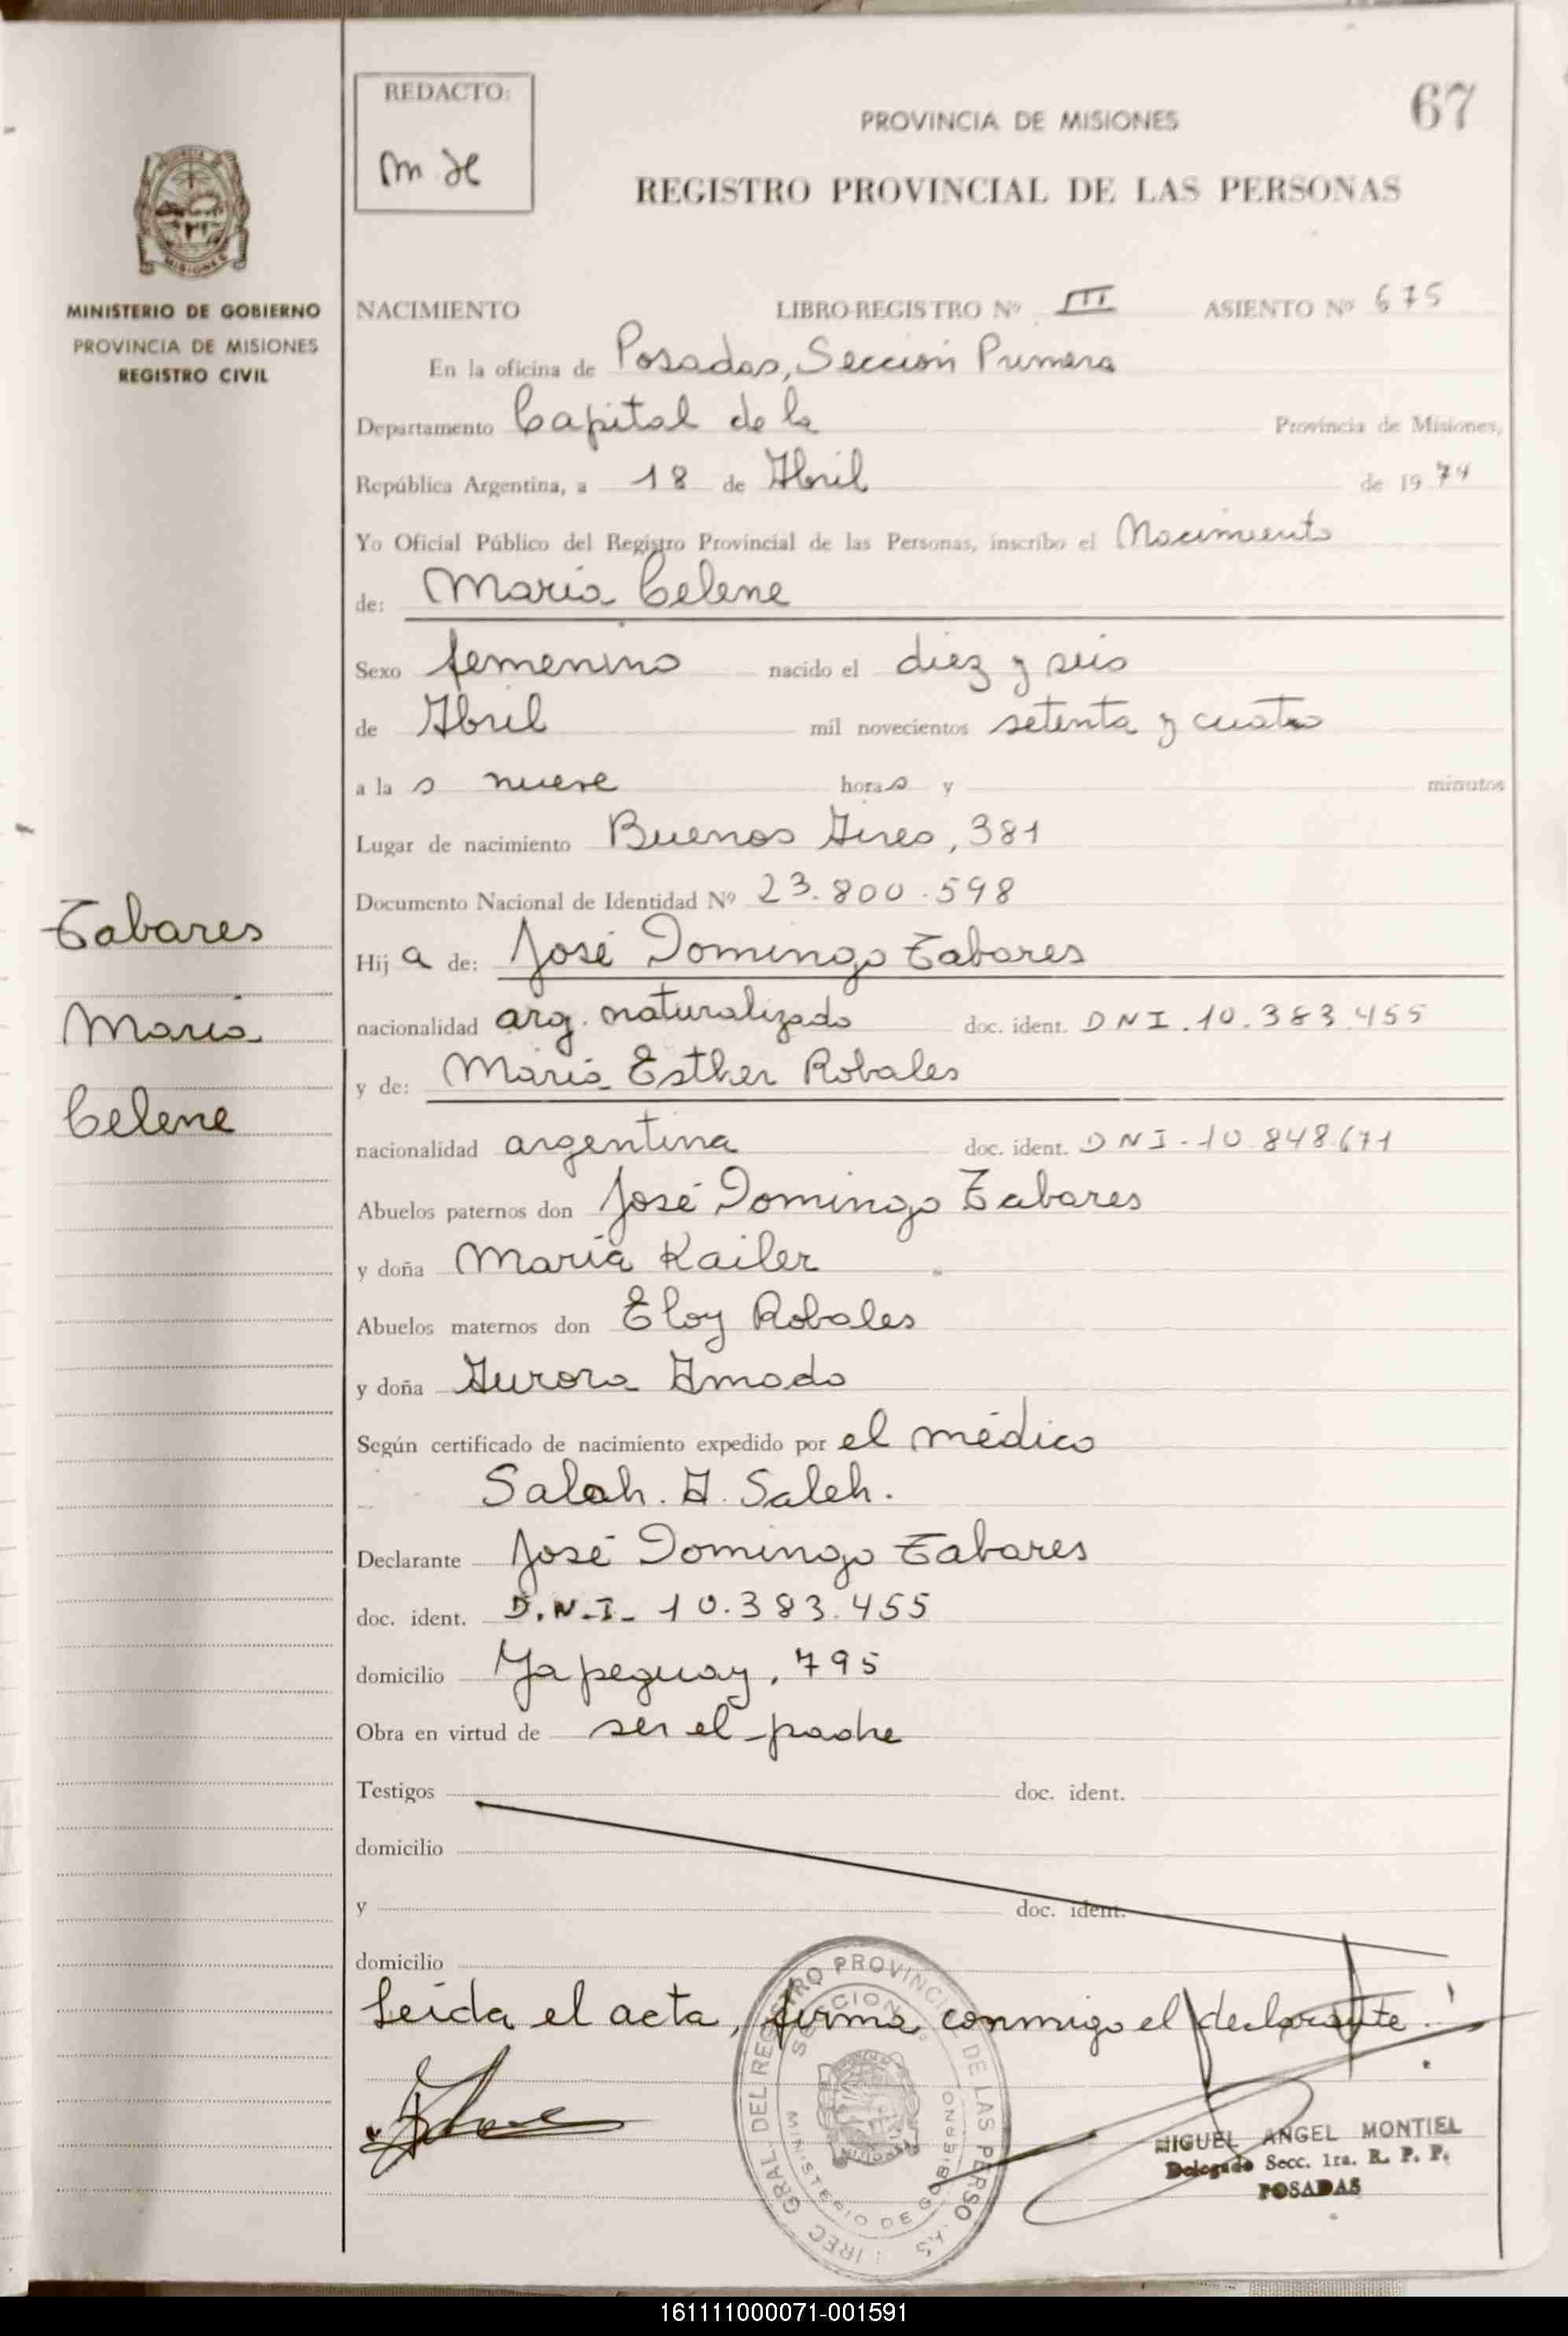 REDACTO:
M H
PROVINCIA DE MISIONES
67
REGISTRO PROVINCIAL DE LAS PERSONAS
MISIONES
MINISTERIO DE GOBIERNO
PROVINCIA DE MISIONES
REGISTRO CIVIL
NACIMIENTO LIBRO-REGISTRO Nº III ASIENTO Nº 675
En la oficina de Posadas, Sección Primera
Departamento Capital de la Provincia de Misiones,
República Argentina, a 18 de Abril de 1974
Yo Oficial Público del Registro Provincial de las Personas, inscribo el Nacimiento
de: María Celene
Sexo femenino nacido el diez y seis
de Abril mil novecientos setenta y cuatro
a la s nueve horas y minutos
Lugar de nacimiento Buenos Aires, 381
Documento Nacional de Identidad Nº 23.800.598
Tabares
María
Celene
Hij a de: José Domingo Tabares
nacionalidad arg. naturalizado doc. ident. DNI.10.383.455
y de: María Esther Robales
nacionalidad argentina doc. ident. DNI-10.848.671
Abuelos paternos don José Domingo Tabares
y doña María Kailer
Abuelos maternos don Eloy Robales
y doña Aurora Amado
Según certificado de nacimiento expedido por el médico
Salah. A. Saleh.
Declarante José Domingo Tabares
doc. ident. D.N.I- 10.383.455
domicilio Yapeguay, 795
Obra en virtud de ser el padre
Testigos doc. ident.
domicilio
y doc. ident.
domicilio
Leída el acta, firma conmigo el declarante.
DIREC. GRAL. DEL REGISTRO PROVINCIAL DE LAS PERSONAS
SECCION
MINISTERIO DE GOBIERNO
MISIONES
MIGUEL ANGEL MONTIEL
Delegado Secc. 1ra. R. P. P.
POSADAS
161111000071-001591